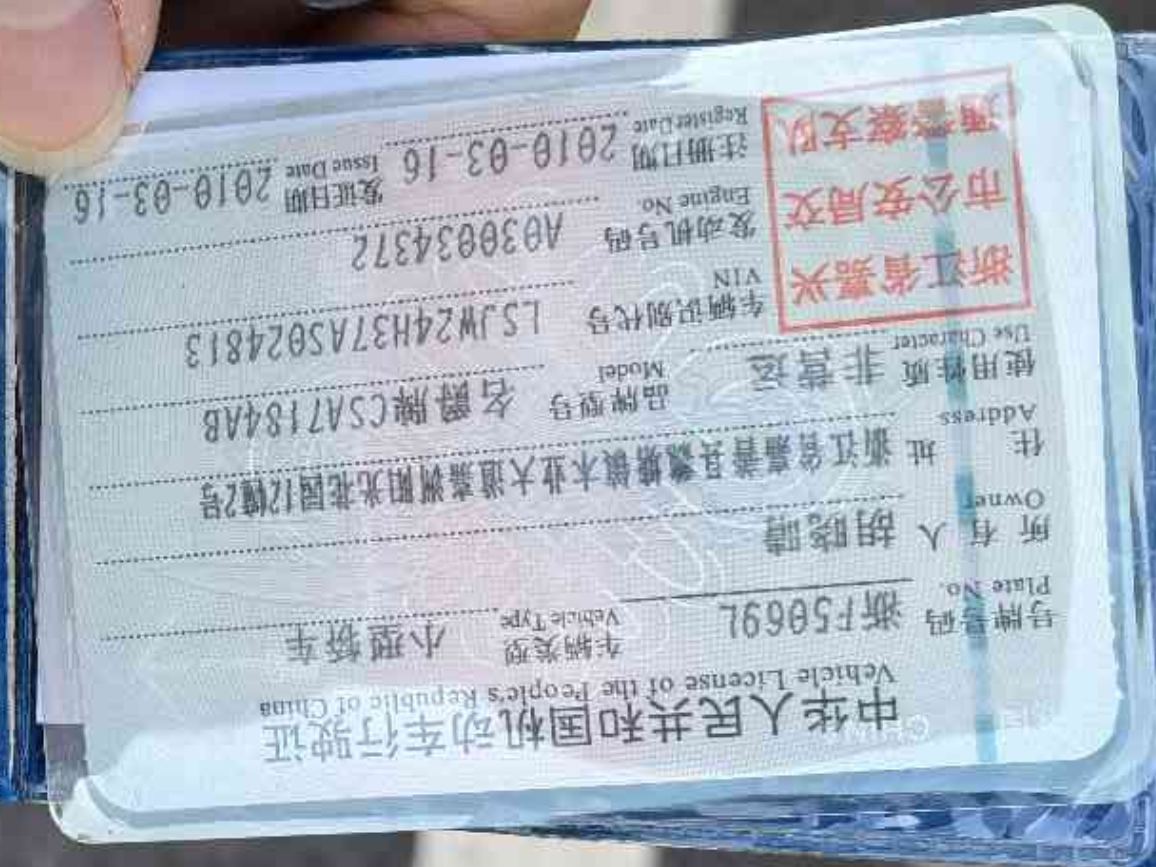 中华人民共和国机动车行驶证
Vehicle License of the People's Republic of China
号牌号码 浙F5069L 车辆类型 小型轿车
Plate No. Vehicle Type
所有人 胡晓晴
Owner
住址 浙江省嘉善县魏塘镇木业大道嘉洲阳光北园12幢2号
Address
使用性质 非营运 品牌型号 名爵牌CSA7184AB
Use Character Model
浙江省嘉兴
市公安局交
通警察支队
车辆识别代号 LSJW24H37AS024813
VIN
发动机号码 A030034372
Engine No.
注册日期 2010-03-16 发证日期 2010-03-16
Register Date Issue Date